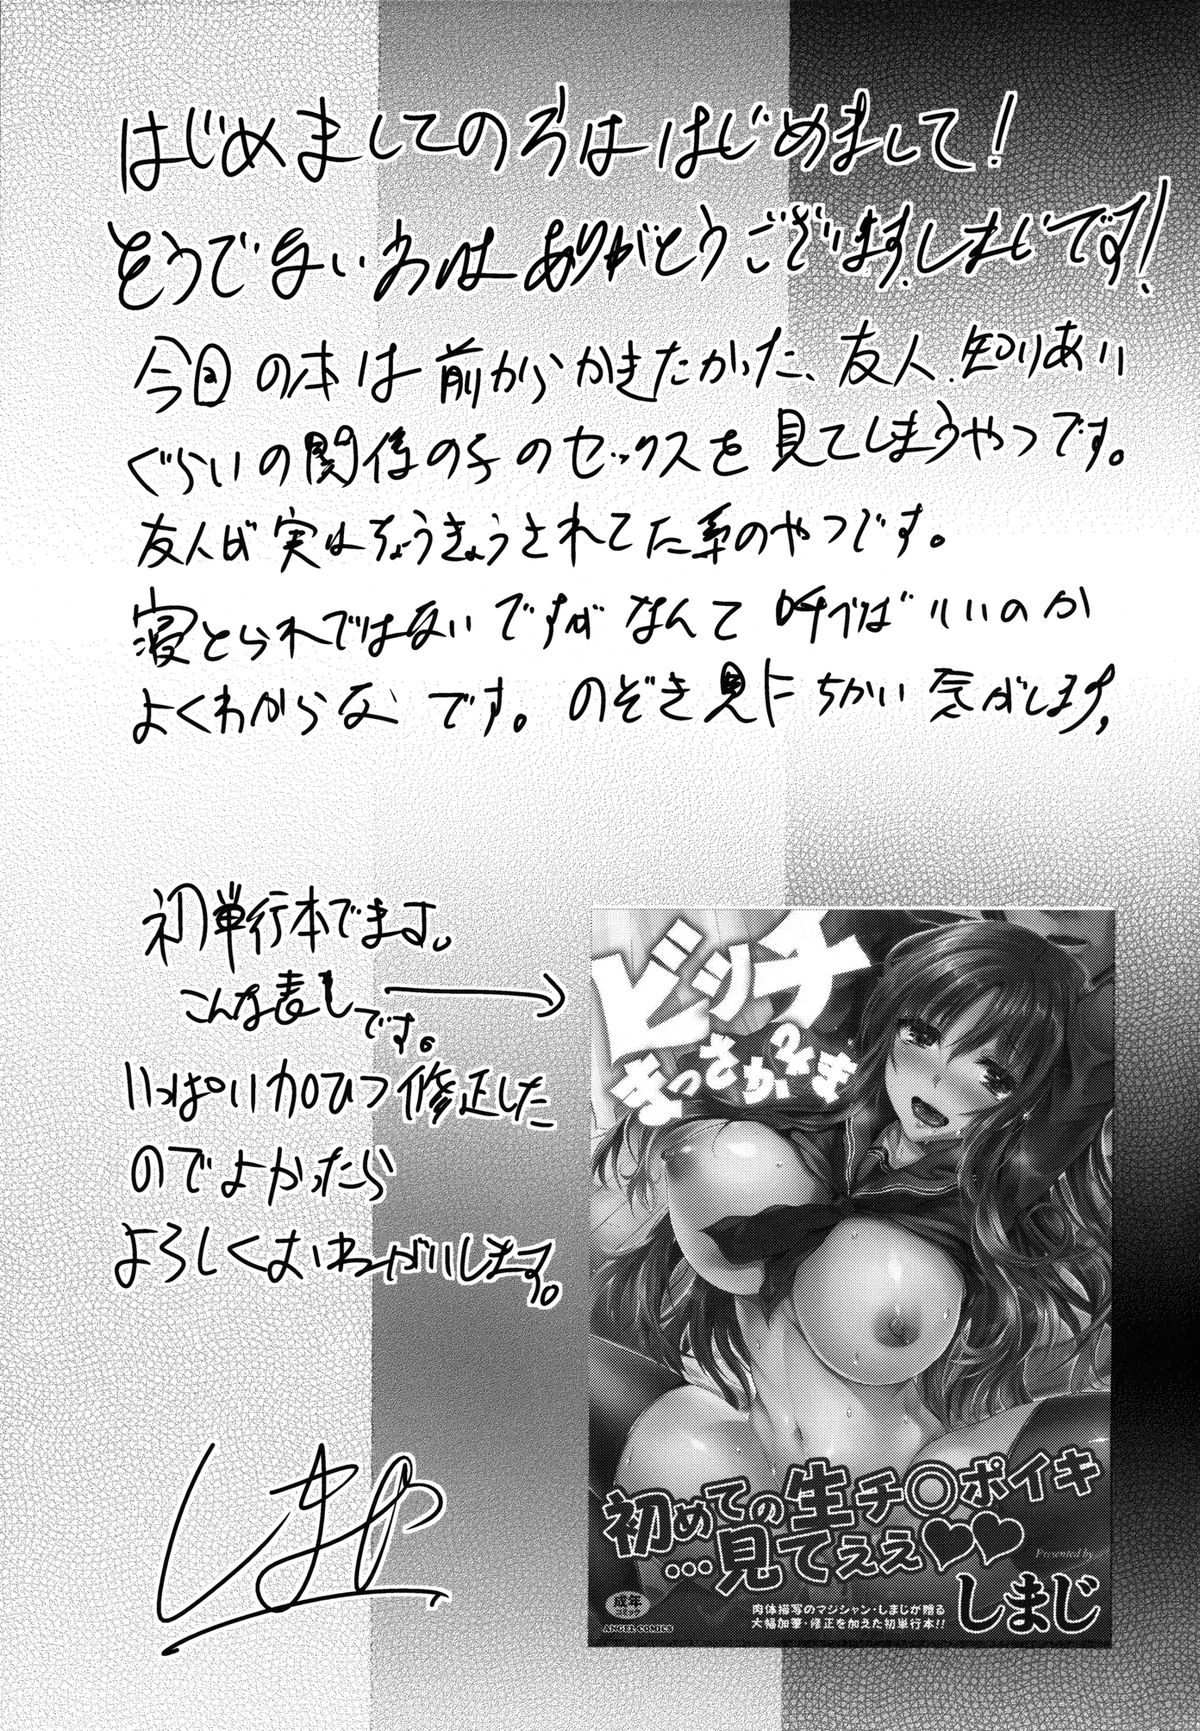 はじめましての方ははじめまして！
そうでない方はありがとうございます。しまじです！
今回の本は前からかきたかった、友人、知りあい
ぐらいの関係の子のセックスを見てしまうやつです。
友人が実はちょうきょうされてた系のやつです。
寝とられではないですがなんて呼べばいいのか
よくわからないです。のぞき見にちかい気がします。
初単行本でます。
こんな表しです。
いっぱい加ひつ修正した
のでよかったら
よろしくおねがいします。
ビッチ
まっさかさま
初めての生チ〇ポイキ
…見てぇぇ♥♥
Presented by
しまじ
成年
コミック
ANGEL COMICS
肉体描写のマジシャン・しまじが贈る
大幅加筆・修正を加えた初単行本!!